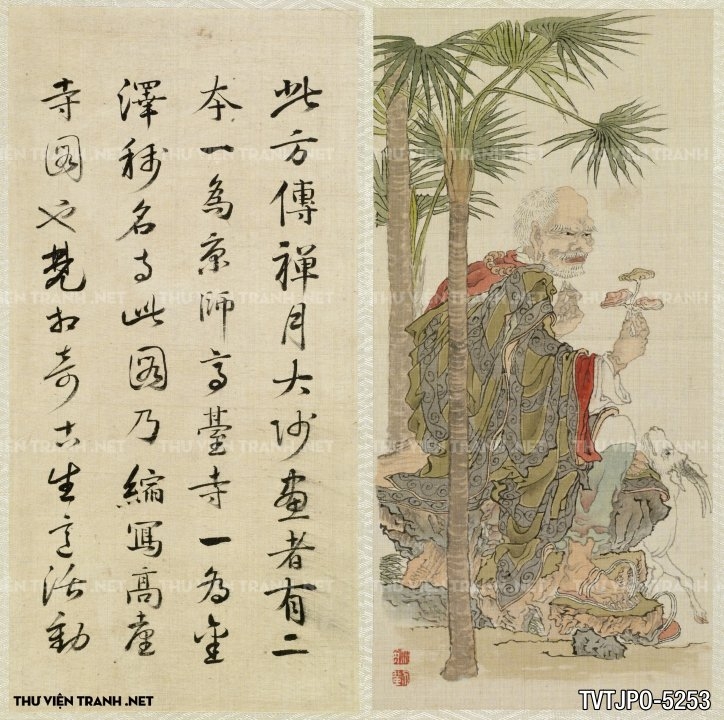 此方傳禪月大師畫者有二
本一為京師高臺寺一為金
澤稱名寺此圖乃縮寫高臺
寺圖也梵相奇古生意活動
THƯ VIỆN TRANH .NET
TVTJPO-5253